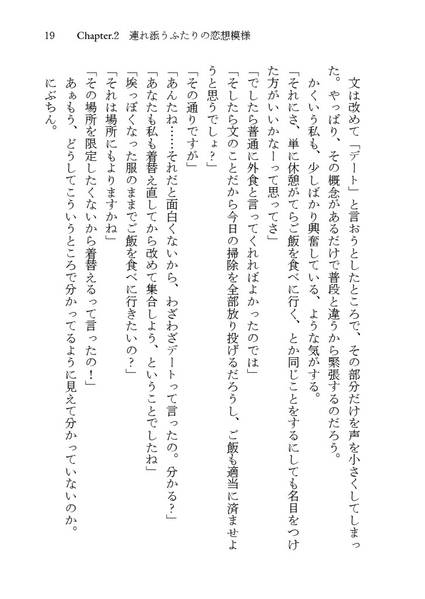 19 Chapter.2 連れ添うふたりの恋想模様
　文は改めて「デート」と言おうとしたところで、その部分だけを声を小さくしてしまっ
た。やっぱり、その概念があるだけで普段と違うから緊張するのだろう。
　かくいう私も、少しばかり興奮している、ような気がする。
「それにさ、単に休憩がてらご飯を食べに行く、とか同じことをするにしても名目をつけ
た方がいいかなーって思ってさ」
「でしたら普通に外食と言ってくれればよかったのでは」
「そしたら文のことだから今日の掃除を全部放り投げるだろうし、ご飯も適当に済ませよ
うと思うでしょ？」
「その通りですが」
「あんたね……それだと面白くないから、わざわざデートって言ったの。分かる？」
「あなたも私も着替え直してから改めて集合しよう、ということでしたね」
「埃っぽくなった服のままでご飯を食べに行きたいの？」
「それは場所にもよりますかね」
「その場所を限定したくないから着替えるって言ったの！」
　あぁもう、どうしてこういうところで分かってるように見えて分かっていないのか。
　にぶちん。